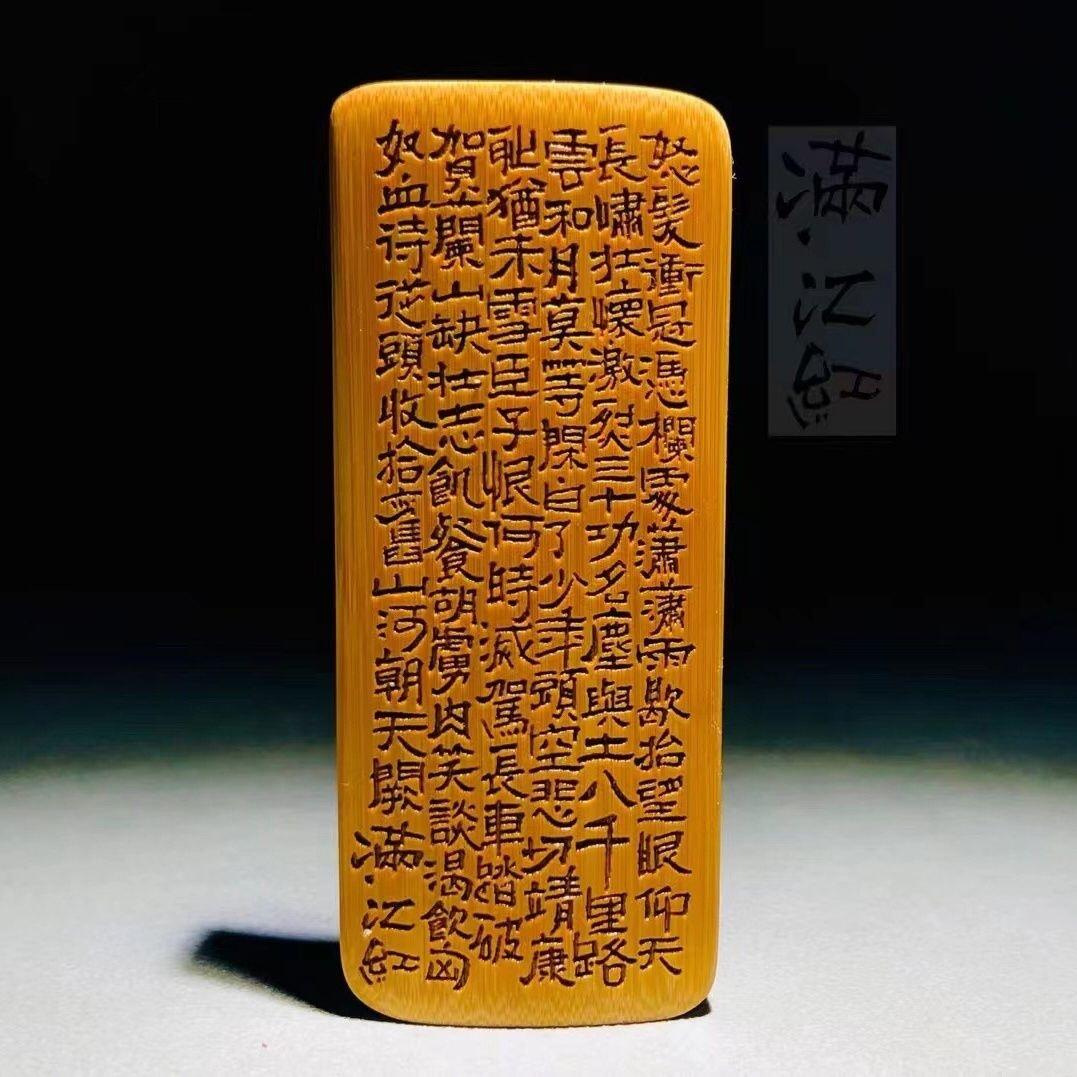 怒髮衝冠憑欄處瀟瀟雨歇抬望眼仰天
長嘯壯懷激烈三十功名塵與土八千里路
雲和月莫等閑白了少年頭空悲切靖康
耻猶未雪臣子恨何時滅駕長車踏破
賀蘭山缺壯志飢餐胡虜肉笑談渴飲匈
奴血待從頭收拾舊山河朝天闕滿江紅
滿江紅